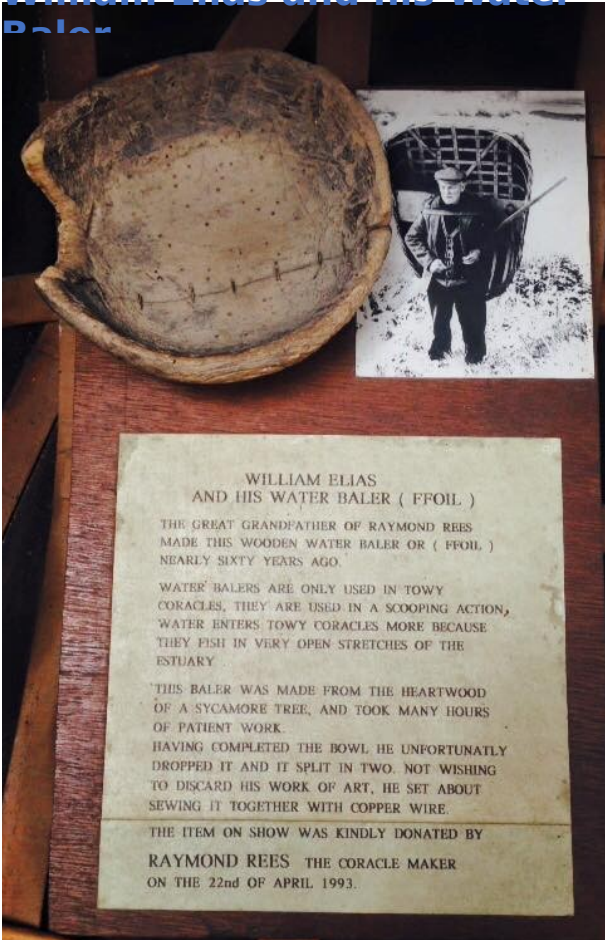 William Elias and his Water
Baler
WILLIAM ELIAS
AND HIS WATER BALER ( FFOIL )
THE GREAT GRANDFATHER OF RAYMOND REES
MADE THIS WOODEN WATER BALER OR ( FFOIL )
NEARLY SIXTY YEARS AGO.
WATER BALERS ARE ONLY USED IN TOWY
CORACLES, THEY ARE USED IN A SCOOPING ACTION,
WATER ENTERS TOWY CORACLES MORE BECAUSE
THEY FISH IN VERY OPEN STRETCHES OF THE
ESTUARY
THIS BALER WAS MADE FROM THE HEARTWOOD
OF A SYCAMORE TREE, AND TOOK MANY HOURS
OF PATIENT WORK.
HAVING COMPLETED THE BOWL HE UNFORTUNATLY
DROPPED IT AND IT SPLIT IN TWO. NOT WISHING
TO DISCARD HIS WORK OF ART, HE SET ABOUT
SEWING IT TOGETHER WITH COPPER WIRE.
THE ITEM ON SHOW WAS KINDLY DONATED BY
RAYMOND REES THE CORACLE MAKER
ON THE 22nd OF APRIL 1993.